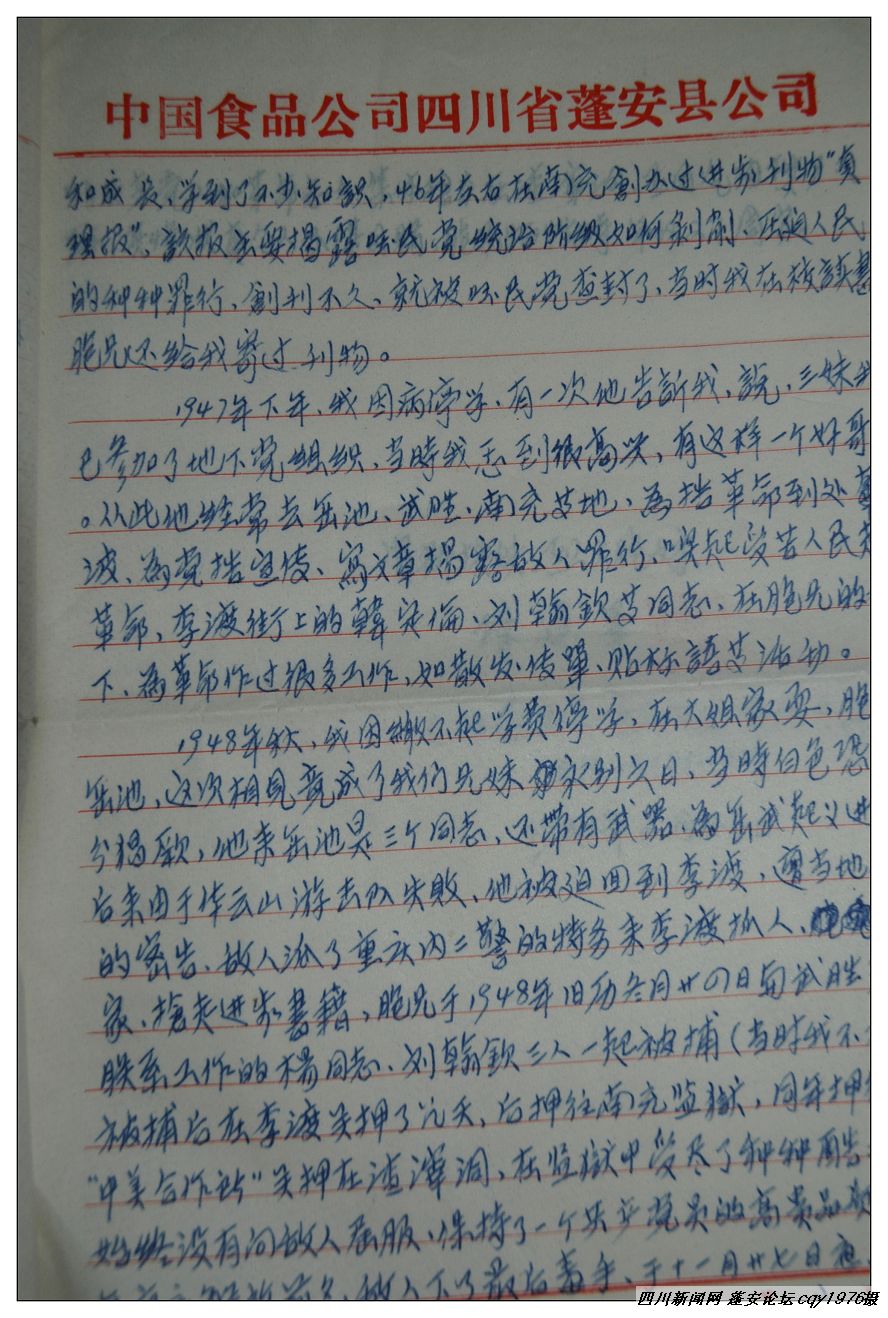 中国食品公司四川省蓬安县公司
和成长、学到了不少知识，46年左右在南充創办过进步刊物“真
理报”、該报主要揭露吐民党统治阶级如何剥削、压迫人民
的种种罪行、創刊不久、就被吐民党查封了、当时我在校讀書
胞兄还给我寄过刊物。
1947年下年、我因病停学、有一次他告訴我、說，三妹我
已参加了地下党组织、当時我感到很高兴，有这样一个好哥
。从此他经常去岳池、武胜、南充等地、為搞革命到处
波、為党搞宣传、寫文章揭露敌人罪行、唤起受苦人民
革命，李渡街上的韓定倫、刘翰欽等同志、在胞兄的
下、為革命作过很多工作，如散发传單、贴标語等活动。
1948年秋、我因缴不起学费停学、在大姐家耍，胞
岳池，这次相見竟成了我们兄妹永别之日、当時白色恐
分猖厥，他来岳池是三个同志、还带有武器、為岳武起义进
后来由于华云山游击队失敗、他被迫回到李渡，遭当地
的密告、敌人派了重庆内二警的特务来李渡抓人、
家、搶走进步書籍，胞兄于1948年旧历冬月廿四日与武胜
联系工作的楊同志、刘翰欽三人一起被捕（当时我不
被捕后在李渡关押了几天，后押往南充监獄，同年押
“中美合作所”关押在渣滓洞，在监獄中受尽了种种酷
始终没有向敌人屈服、保持了一个共产党员的高贵品
解放前夕、敌人下了最后毒手、于十一月廿七日夜
四川新闻网 蓬安论坛 cqy1976摄